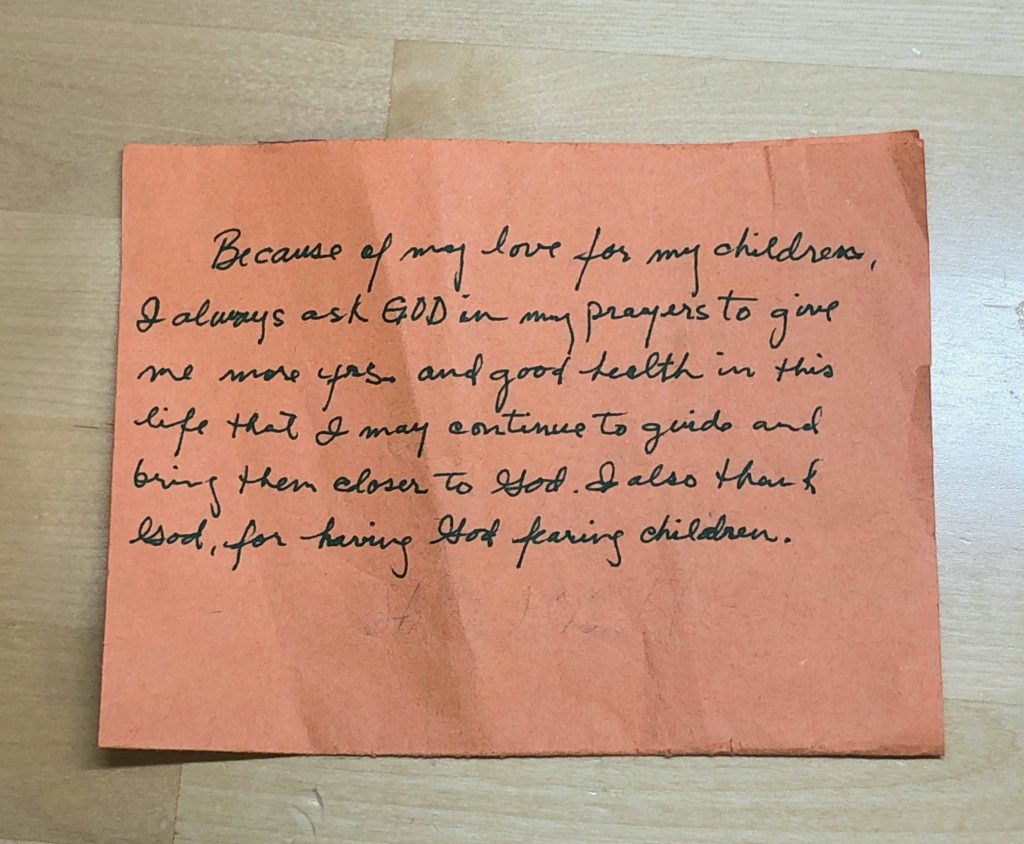 Because of my love for my children,
I always ask GOD in my prayers to give
me more yrs. and good health in this
life that I may continue to guide and
bring them closer to God. I also thank
God, for having God fearing children.